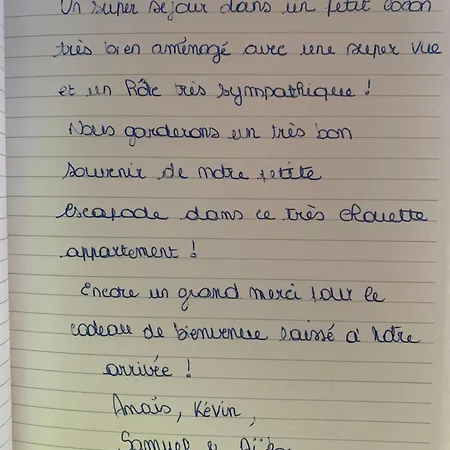 Un super séjour dans un petit cocon
très bien aménagé avec une super vue
et un hôte très sympathique !
Nous garderons un très bon
souvenir de notre petite
escapade dans ce très chouette
appartement !
Encore un grand merci pour le
cadeau de bienvenue laissé à notre
arrivée !
Anaïs, Kévin,
Samuel &